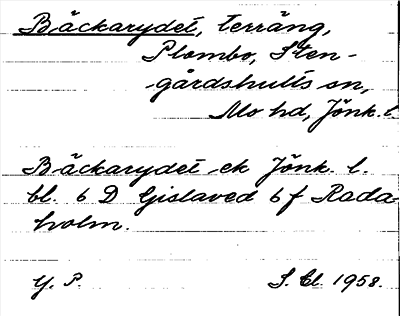 Bäckarydet, terräng,
Plombo, Sten-
gårdshults sn,
Mo hd, Jönk. l.
Bäckarydet ek Jönk. l.
bl. 6 D Gislaved 6 f Rada-
holm.
Y. P.
S. Cl. 1958.